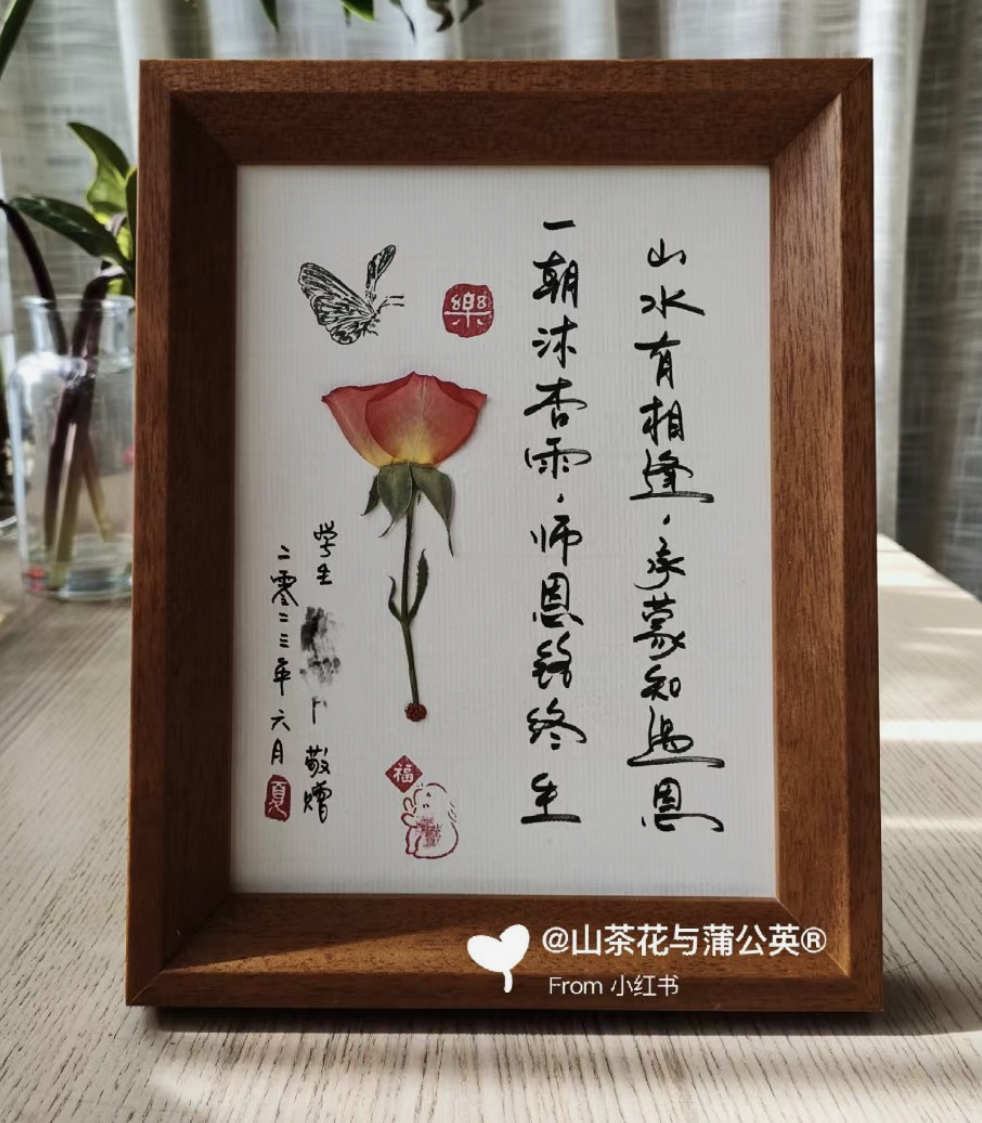 山水有相逢，承蒙知遇恩
一朝沐杏雨，师恩铭终生
樂
学生
敬赠
二零二三年六月
夏
福
@山茶花与蒲公英®
From 小红书